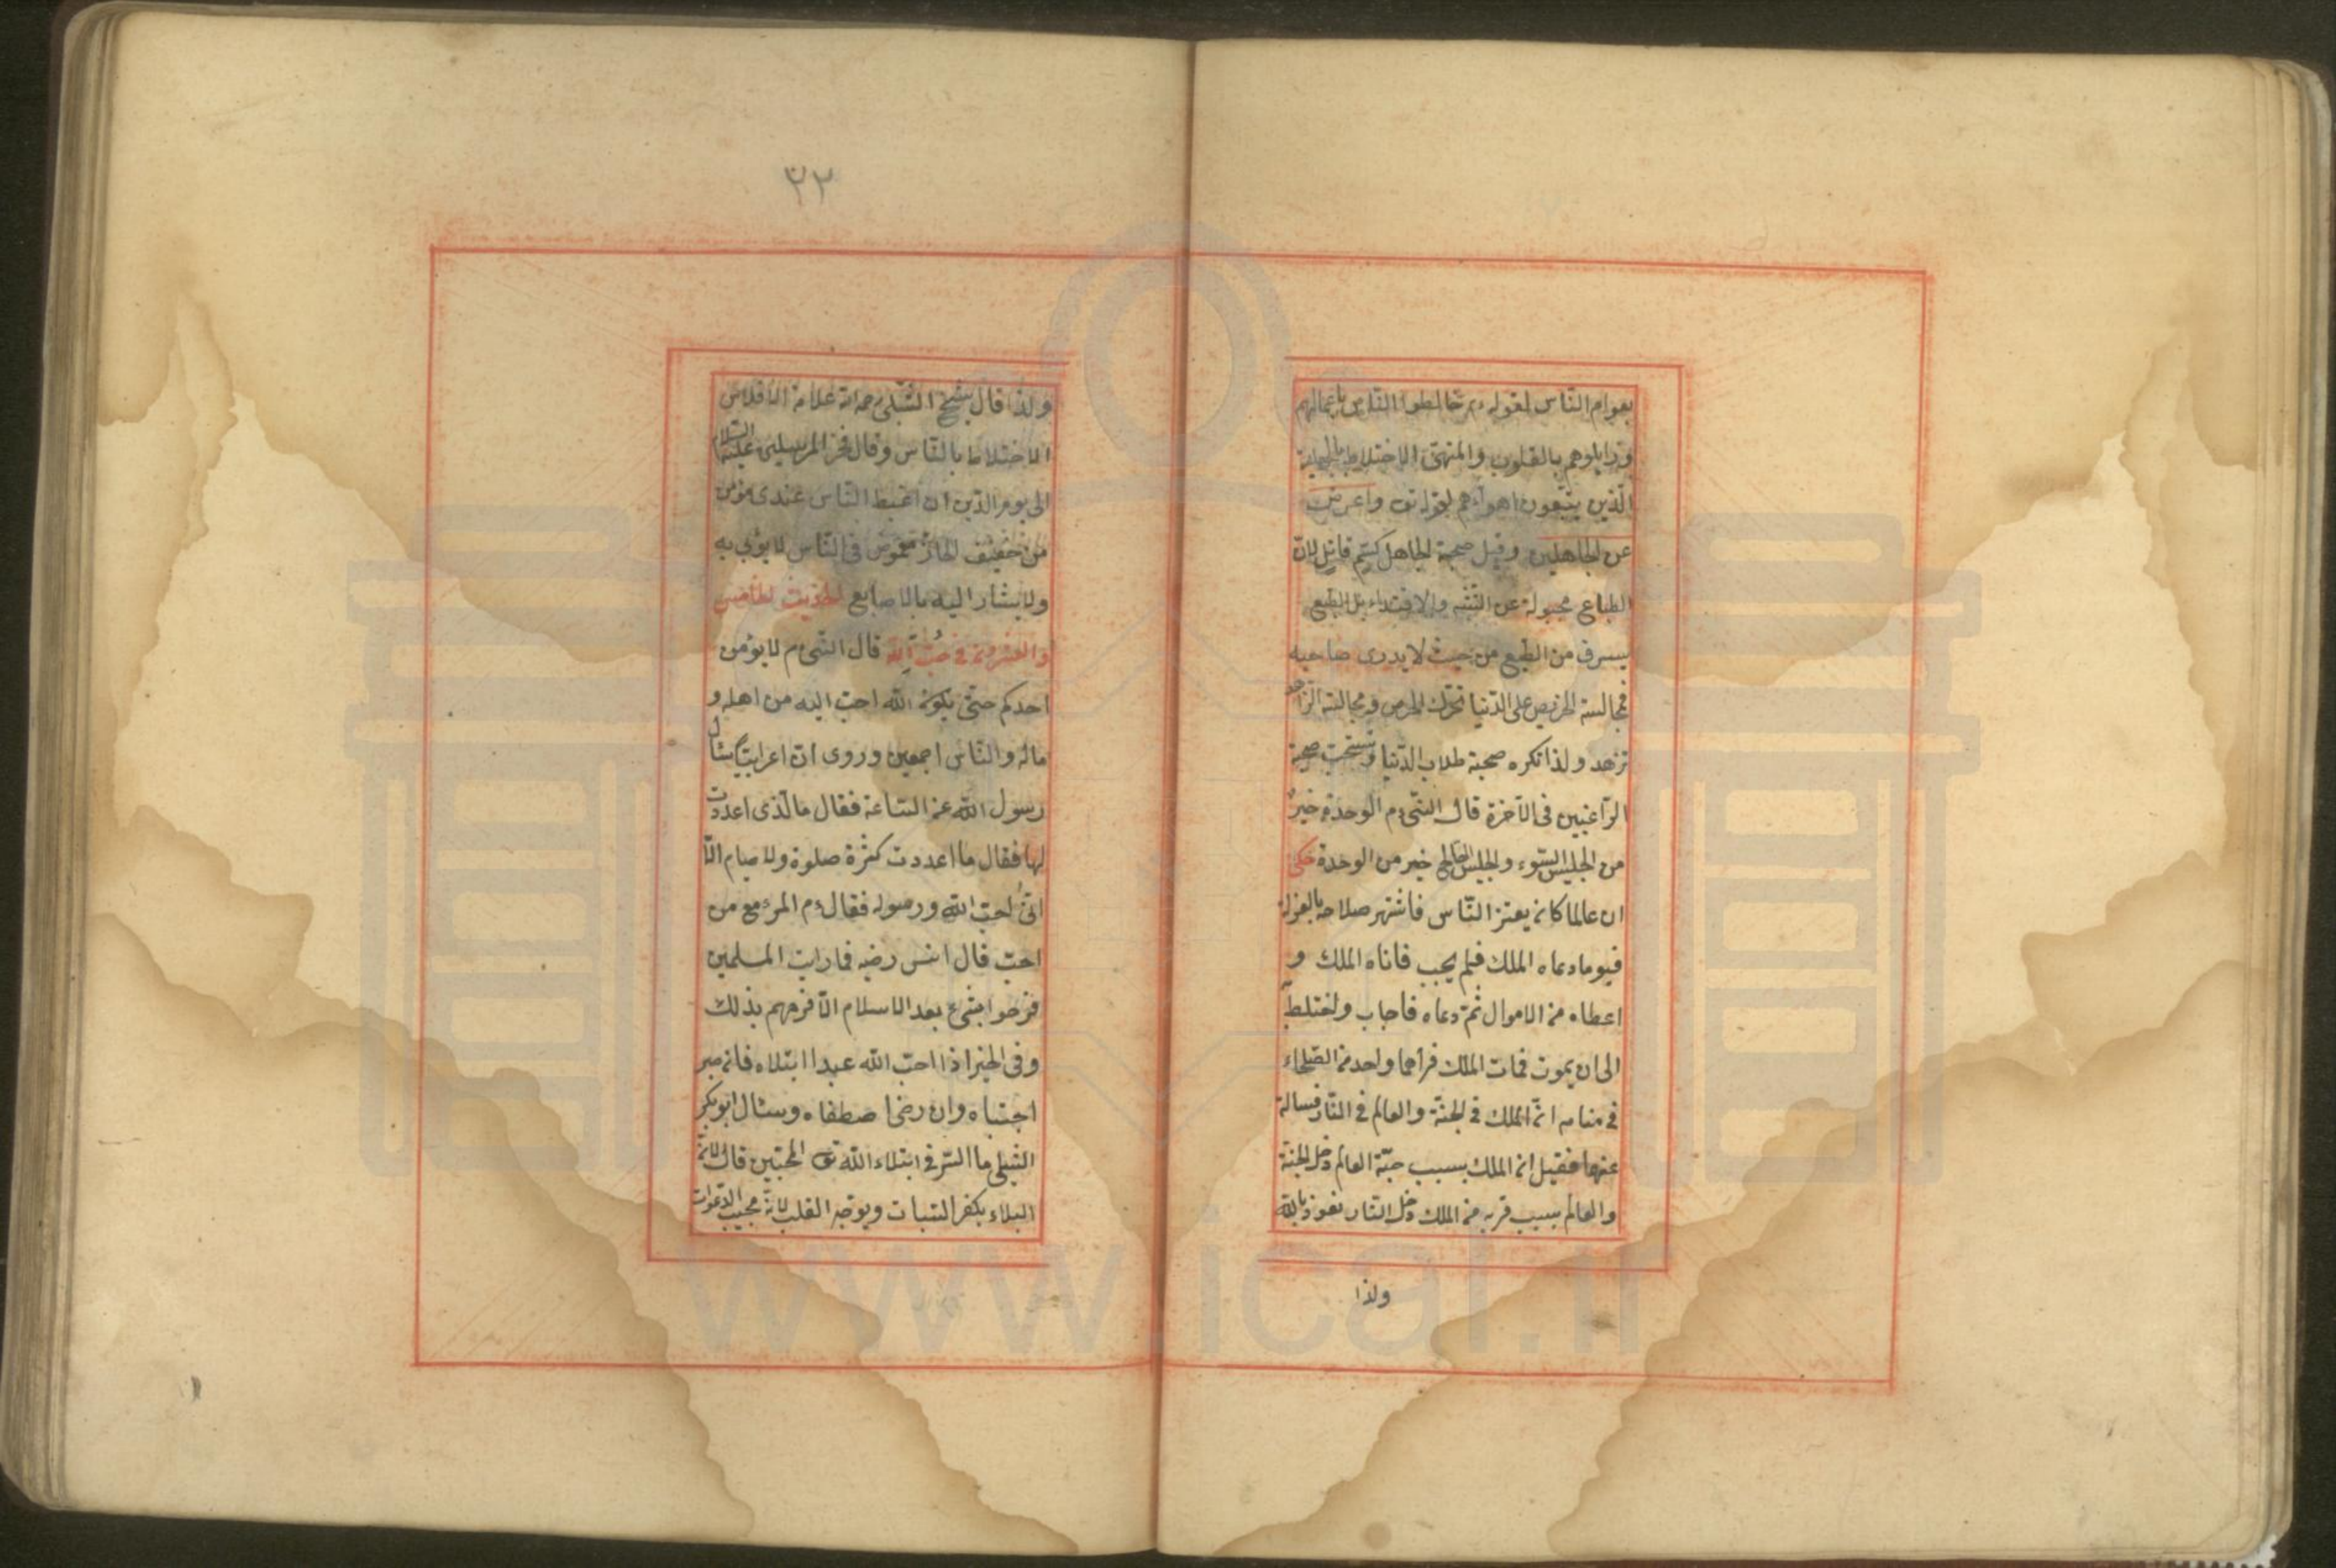 بعوام النّاس لقوله ءم خالطوا النّاس باعمالهم
وزايلوهم بالقلوب والمنهىّ الاختلاط بالجهلة
الّذين يتبّعون اهواءهم لقوله تع واعرض
عن الجاهلين وقيل صحبة الجاهل كسّم قاتل لانّ
الطباع مجبولة عن التشبّه والاقتداء بل الطبع
يسرق من الطبع من حيث لا يدرى صاحبه
فمجالسة الحريص على الدّنيا تحرّك الحرص ومجالسة الزّاهد
تزهد ولذا تكره صحبة طلاب الدّنيا وتستحبّ صحبة
الرّاغبين فى الآخرة قال النبّى ءم الوحدة خيرٌ
من الجليس السّوء والجليس الصّالح خير من الوحدة حكى
ان عالما كان يعتز النّاس فاشتهر صلاحه بالعزلة
فيوما دعاه الملك فلم يجب فاتاه الملك و
اعطاه من الاموال ثمّ دعاه فاجاب واختلط
الى ان يموت فمات الملك فرأهما واحد من الصّلحاء
فى منامه انّ الملك فى الجنّة والعالم فى النّار فساله
عنهما فقيل ان الملك بسبب حبّه العالم دخل الجنة
والعالم بسبب قربه من الملك دخل النّار نعوذ بالله
ولذا
٢٢
ولذا قال شيخ الشّبلى رحمه الله علامة الافلاس
الاختلاط بالنّاس وقال فخر المرسلين عليه السّلام
الى يوم الدّين ان اغبط النّاس عندى مؤمن
من خفيف الحاذ غموض فى النّاس لا يؤبى به
ولا يشار اليه بالاصابع الحديث الخامس
والعشرون فى حُبّ اللّه قال النبّى ءم لا يؤمن
احدكم حتّى يكون اللّه احبّ اليه من اهله و
ماله والنّاس اجمعين وروى انّ اعرابيّا سئال
رسول اللّه عن السّاعة فقال ما لّذى اعددت
لها فقال ما اعددت كثرة صلوة ولا صيام الّا
انّى احبّ اللّه ورسوله فقال ءم المرء مع من
احبّ قال انس رضيه فما رايت المسلمين
فرحوا بشىء بعد الاسلام الّا فرحهم بذلك
وفى الخبر اذا احبّ اللّه عبدا ابتلاه فان صبر
اجتباه وان رضى اصطفاه وسئال ابو بكر
الشبلى ما السّر فى ابتلاء اللّه تع المحبّين قال لانّ
البلاء يكفر السّيات ويوجّه القلب لانّه مجيب الدّعوات